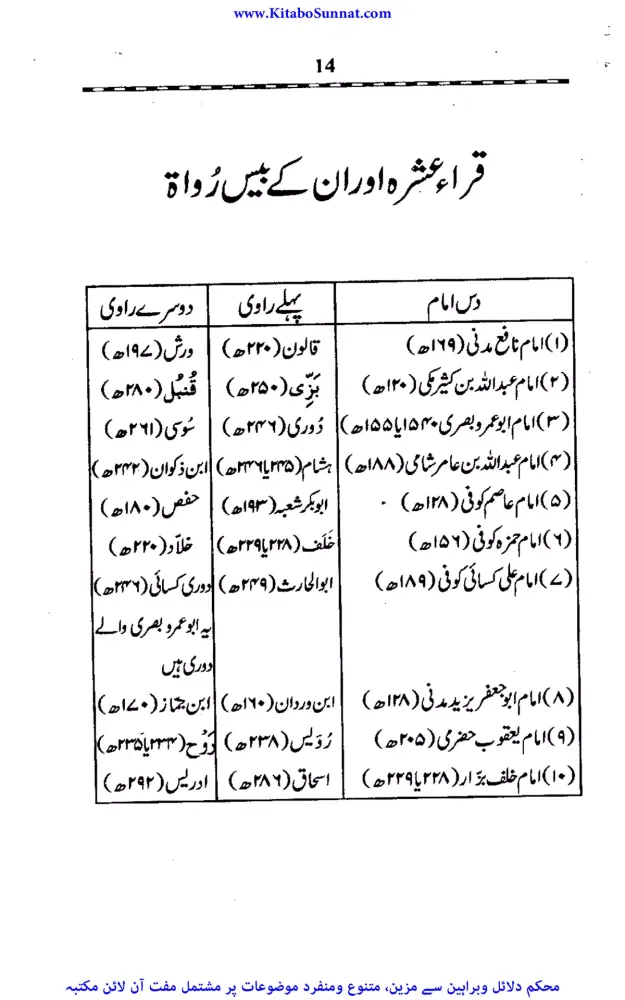 www.KitaboSunnat.com
14
قراء عشرہ اور ان کے بیس رُواۃ
دس امام پہلے راوی دوسرے راوی
(۱) امام نافع مدنی (۱۶۹ھ) قالون (۲۲۰ھ) ورش (۱۹۷ھ)
(۲) امام عبداللہ بن کثیر مکی (۱۲۰ھ) بَزّی (۲۵۰ھ) قُنبُل (۲۸۰ھ)
(۳) امام ابوعمرو بصری ۱۵۴۰یا۱۵۵ھ) دُوری (۲۴۶ھ) سُوسی (۲۶۱ھ)
(۴) امام عبداللہ بن عامر شامی (۱۸۸ھ) ہشام (۲۴۵یا۲۴۶ھ) ابن ذکوان (۲۴۲ھ)
(۵) امام عاصم کوفی (۱۲۸ھ) ابوبکر شعبہ (۱۹۳ھ) حفص (۱۸۰ھ)
(۶) امام حمزہ کوفی (۱۵۶ھ) خَلَف (۲۲۸یا۲۲۹ھ) خلاّد (۲۲۰ھ)
(۷) امام علی کسائی کوفی (۱۸۹ھ) ابوالحارث (۲۴۹ھ) دوری کسائی (۲۴۶ھ)
یہ ابوعمرو بصری والے
دوری ہیں
(۸) امام ابوجعفر یزید مدنی (۱۲۸ھ) ابن وردان (۱۶۰ھ) ابن جمّاز (۱۷۰ھ)
(۹) امام یعقوب حضری (۲۰۵ھ) رُوَیس (۲۳۸ھ) رَوح (۲۳۴یا۲۳۵ھ)
(۱۰) امام خلف بزّار (۲۲۸یا۲۲۹ھ) اسحاق (۲۸۶ھ) ادریس (۲۹۲ھ)
محکم دلائل وبراہین سے مزین، متنوع ومنفرد موضوعات پر مشتمل مفت آن لائن مکتبہ